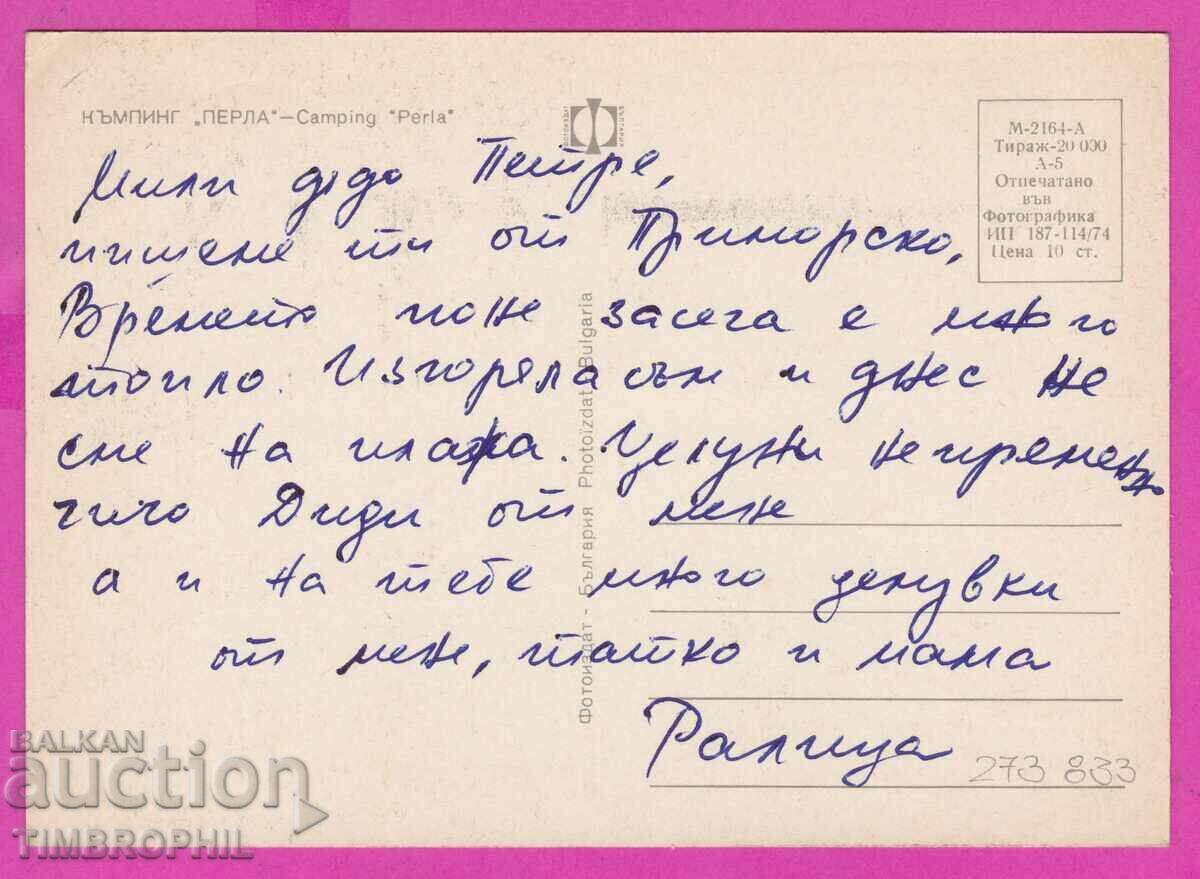 КЪМПИНГ „ПЕРЛА“ – Camping "Perla"
ФОТОИЗДАТ
БЪЛГАРИЯ
М-2164-А
Тираж-20 000
А-5
Отпечатано
във
Фотографика
ИП 187-114/74
Цена 10 ст.
Мили дядо Петре,
пишеме ти от Приморско,
Времето поне засега е много
топло. Изгоряла съм и днес не
сме на плажа. Целуни непременно
чичо Диди от мен
а и на тебе много целувки
от мен, татко и мама
Ралица
Фотоиздат - България Photoizdat Bulgaria
273 833
BALKAN
auction
TIMBROPHIL